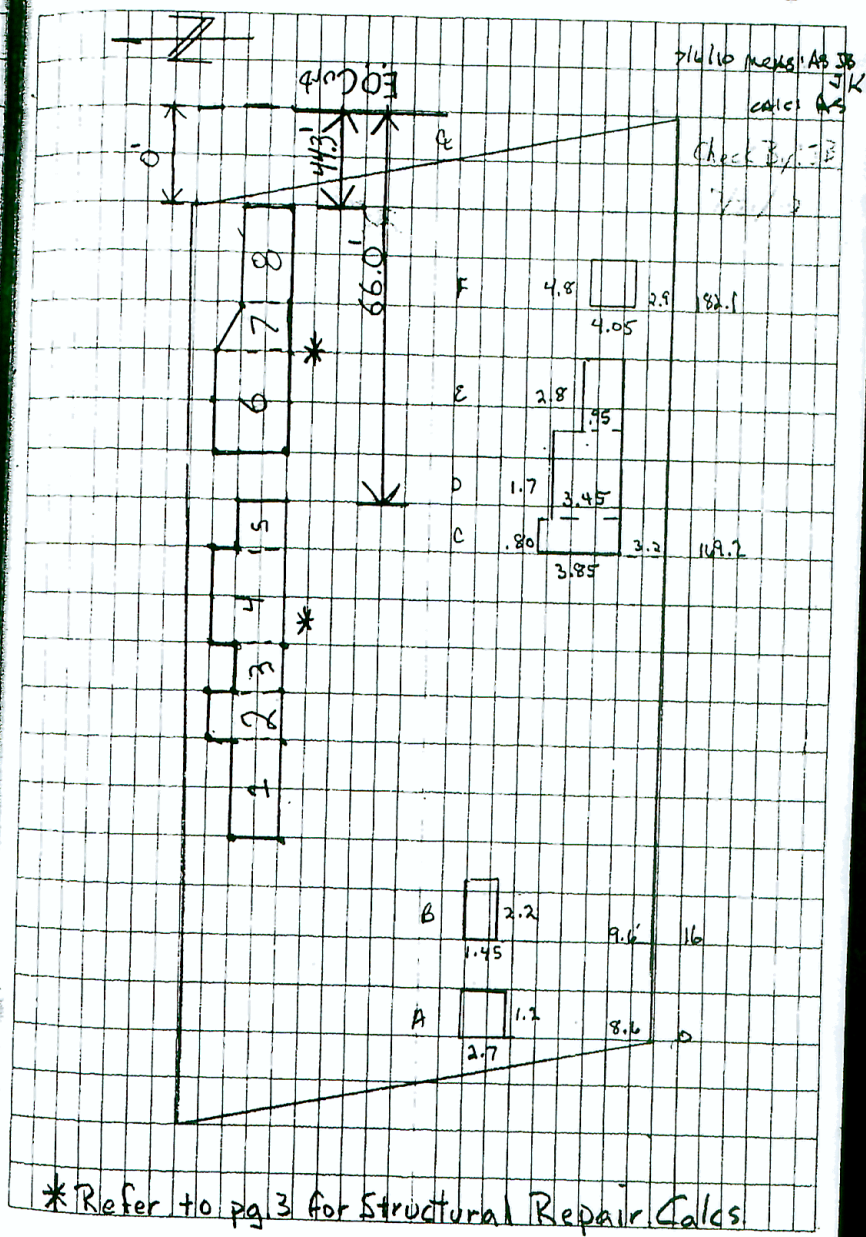 7/6/10 Meas: AS JB
JK
calc: AS
Check By: JB
EO Curb
0'
44.3'
66.0'
℄
8
7
*
6
5
4
*
3
2
1
F 4.8 2.9 182.1
4.05
E 2.8
.95
D 1.7
3.45
C .80 3.2 169.2
3.85
B 2.2 9.6' 16
1.45
A 1.2 8.6 0
2.7
* Refer to pg 3 for Structural Repair Calcs